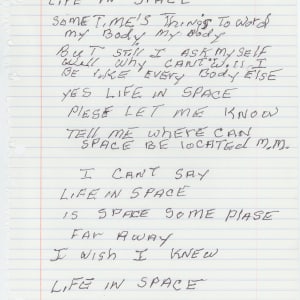 LIFE IN SPACE
SOMETIME'S Things To WORD
my Body my Body
BUT STill I ASK MySELF
Well Why CAN'T I
BE LIKE EVERY BODY ELSE
YES LIFE IN SPACE
PLESE LET ME KNOW
TELL ME WHERE CAN
SPACE BE LOCATED M.M.
I CAN'T SAY
LIFE IN SPACE
IS SPACE SOME PLASE
FAR AWAY
I WISH I KNEW
LIFE IN SPACE